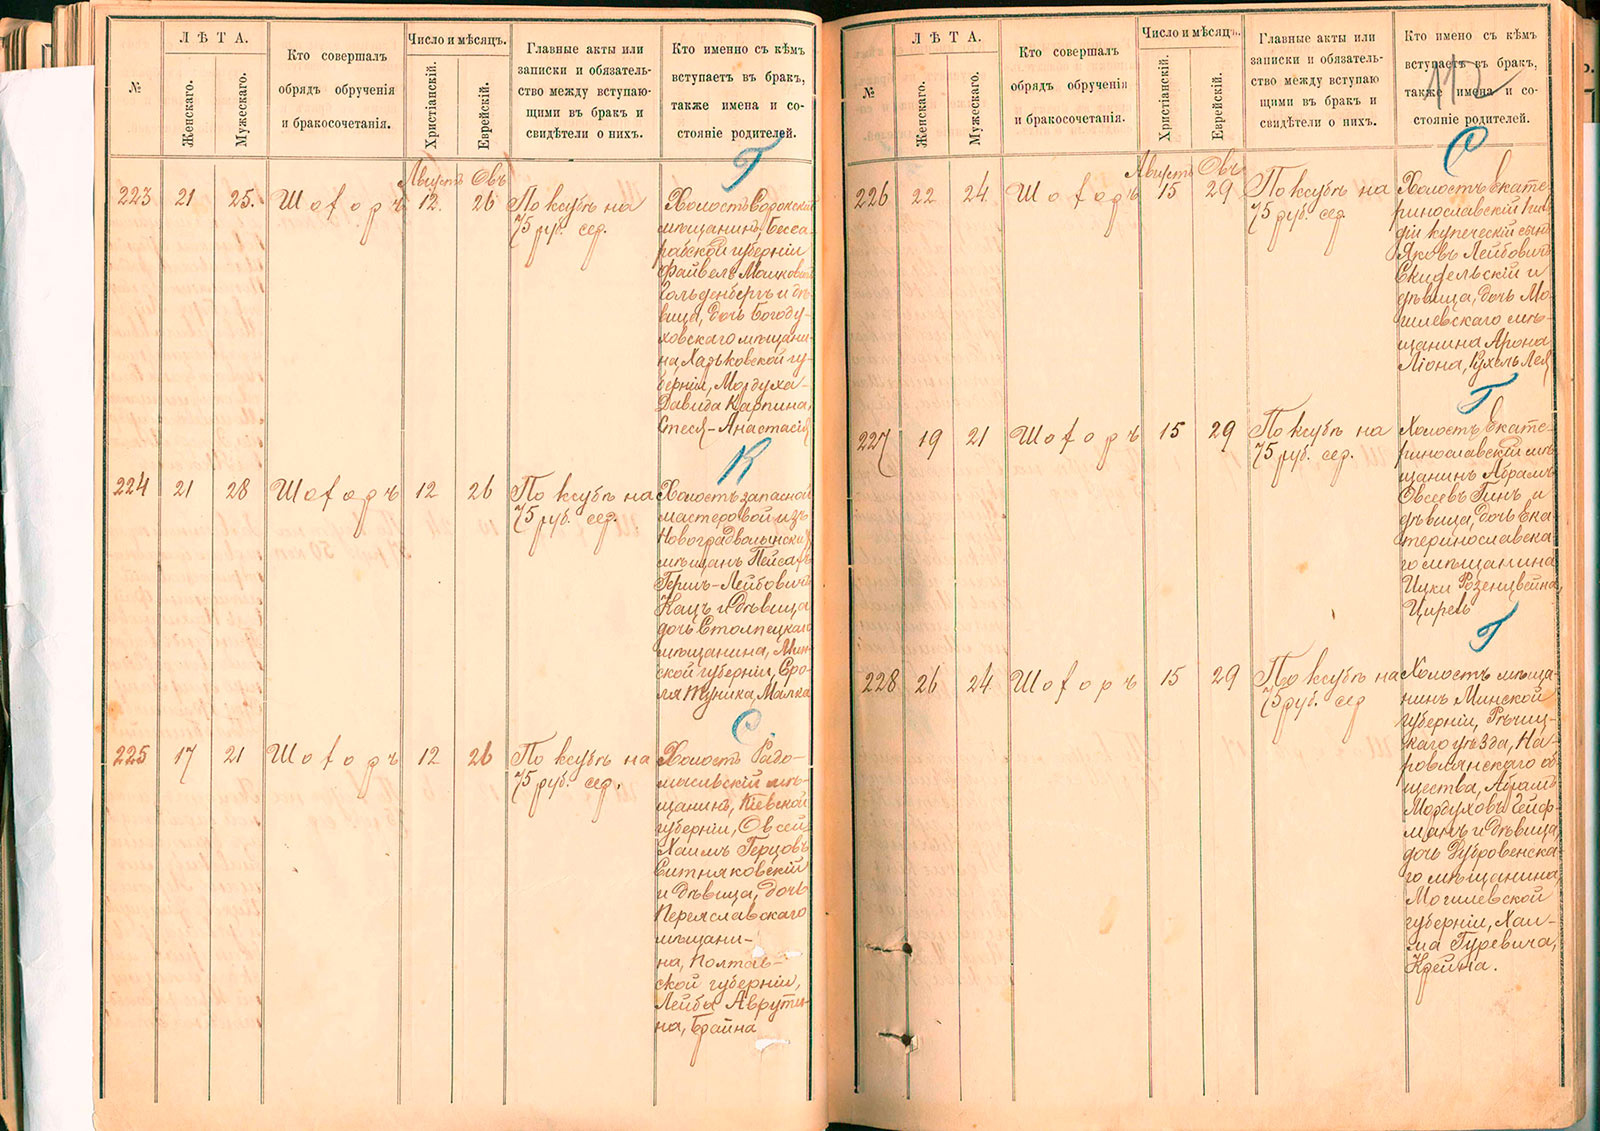 №
ЛѢТА.
Женскаго.
Мужескаго.
Кто совершалъ
обрядъ обрученія
и бракосочетанія.
Число и мѣсяцъ.
Христіанскій.
Еврейскій.
Главные акты или
записки и обязатель-
ство между вступаю-
щими въ бракъ и
свидѣтели о нихъ.
Кто именно съ кѣмъ
вступаетъ въ бракъ,
также имена и со-
стояніе родителей.
Г
Августъ Овъ
223 21 25. Шоforъ 12. 26
По ксубѣ на
75 руб. сер.
Холостъ Сорокскій
мѣщанинъ, Бесса-
рабской губерніи
Файвель Машковичъ
Гольденбергъ и дѣ-
вица, дочь Богоду-
ховскаго мѣщани-
на Харьковской гу-
берніи, Мордуха-
Давида Карпина,
Спеся-Анастасія
К
224 21 28 Шоforъ 12 26
По ксубѣ на
75 руб. сер.
Холостъ запасной
мастеровой изъ
Новоградволынскихъ
мѣщанъ Пейсахъ
Гершъ-Лейбовичъ
Кацъ и дѣвица
дочь Столпецкаго
мѣщанина, Мин-
ской губерніи, Сро-
ля Туника, Малка
С.
225 17 21 Шоforъ 12 26
По ксубѣ на
75 руб. сер.
Холостъ Радо-
мысльскій мѣ-
щанинъ, Кіевской
губерніи, Овсей
Хаимъ Герцовъ
Ситняковскій
и дѣвица, дочь
Переяславскаго
мѣщани-
на, Полтав-
ской губерніи,
Лейбы Аврути-
на, Брайна
№
ЛѢТА.
Женскаго.
Мужескаго.
Кто совершалъ
обрядъ обрученія
и бракосочетанія.
Число и мѣсяцъ.
Христіанскій.
Еврейскій.
Главные акты или
записки и обязатель-
ство между вступаю
щими въ бракъ и
свидѣтели о нихъ.
Кто имено съ кѣмъ
вступаетъ въ бракъ,
также имена и со-
стояніе родителей.
112
С
Августъ Овъ
226 22 24. Шоforъ 15 29
По ксубѣ на
75 руб. сер.
Холостъ Екате-
ринославскій 1 гиль-
діи купеческій сынъ
Яковъ Лейбовичъ
Скидельскій и
дѣвица, дочь Мо-
гилевскаго мѣ-
щанина Арона
Ліона, Рухель Лея
Г
227 19 21 Шоforъ 15 29
По ксубѣ на
75 руб. сер.
Холостъ Екате-
ринославскій мѣ-
щанинъ Абрамъ
Овсеевъ Гинъ и
дѣвица, дочь Ека-
теринославска-
го мѣщанина
Ицки Розенцвейна,
Цирель
Г
228 26 24 Шоforъ 15 29
По ксубѣ на
75 руб. сер
Холостъ мѣща-
нинъ Минской
губерніи, Рѣчиц-
каго уѣзда, На-
ровлянскаго об-
щества, Абрамъ
Мордуховъ Гейф-
манъ и дѣвица,
дочь Дубровенска-
го мѣщанина,
Могилевской
губерніи, Хаи-
ма Гуревича,
Крейна.